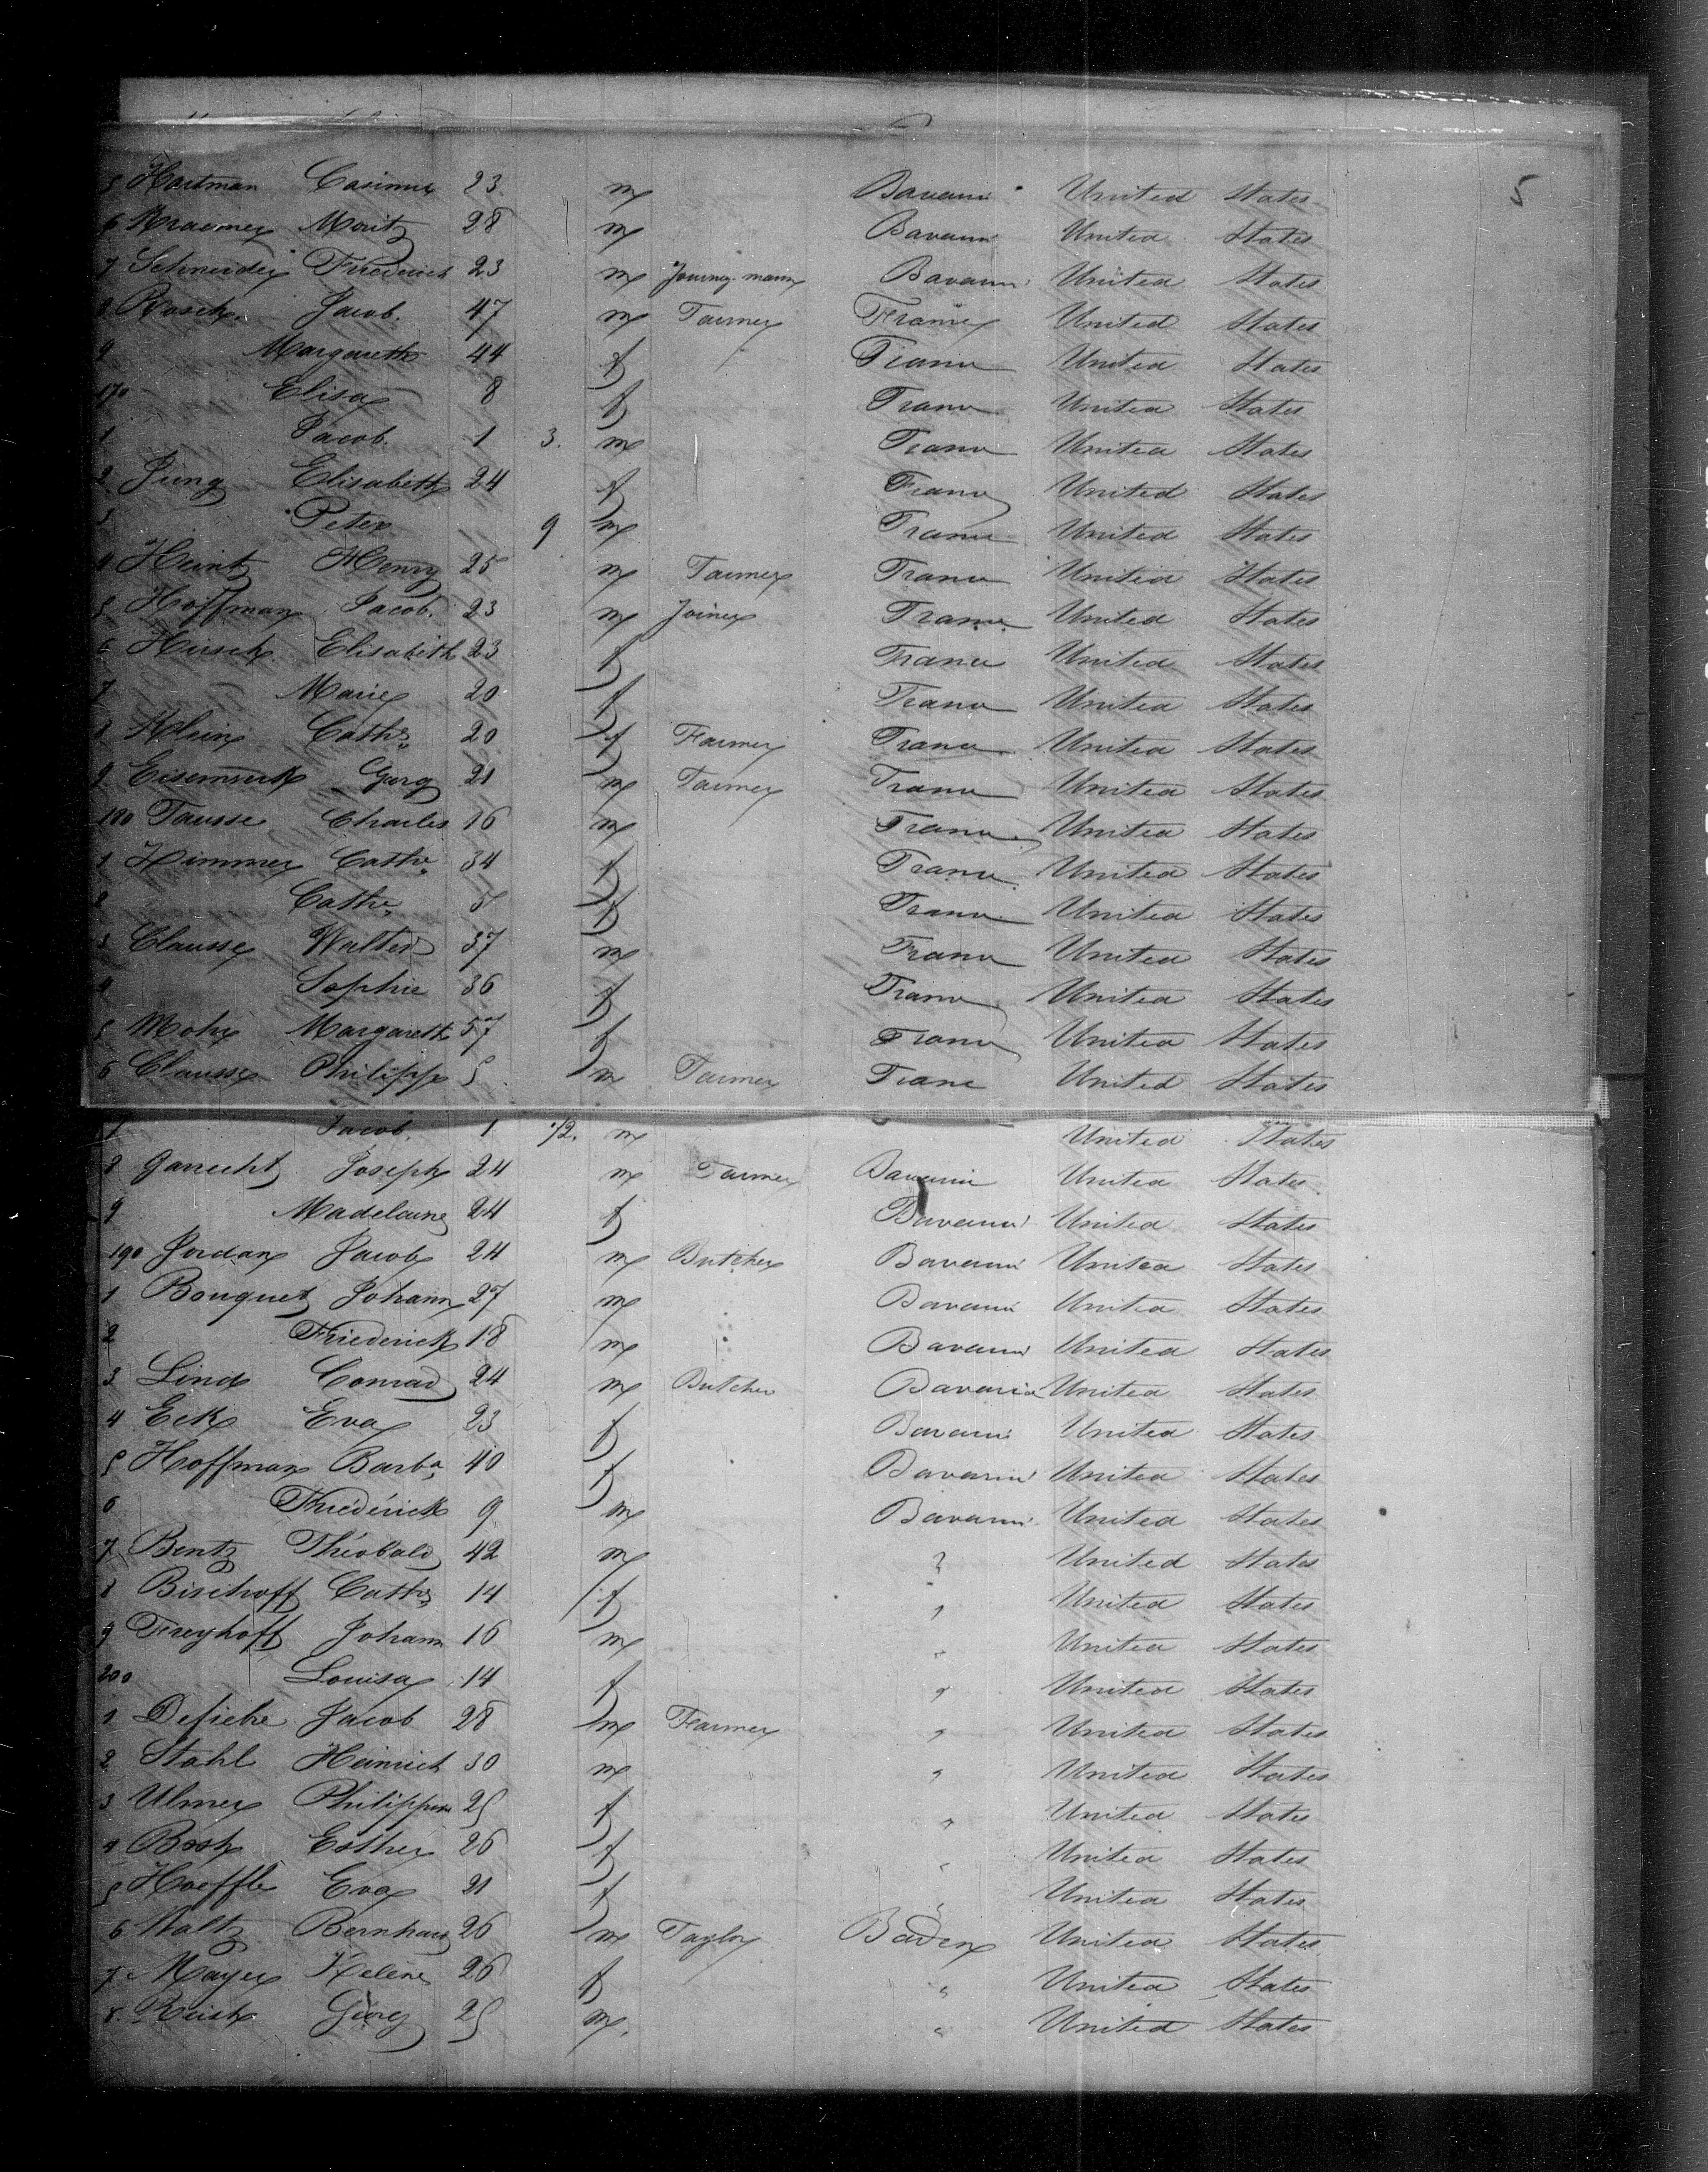 5
5 Hartman Casimir 23 m Bavaria United States
6 Kraemer Moritz 28 m Bavaria United States
7 Schneider Frederick 23 m Journey-mann Bavaria United States
8 Rosch Jacob. 47 m Farmer France United States
9 Margareth 44 f France United States
170 Elisa 8 f France United States
1 Jacob. 1 3. m France United States
2 Jung Elisabeth 24 f France United States
3 Peter 9 m France United States
4 Heintz Henry 25 m Farmer France United States
5 Hoffman Jacob. 23 m Joiner France United States
6 Hirsch Elisabeth 23 f France United States
7 Marie 20 f France United States
8 Klein Cathe 20 f Farmer France United States
9 Georg 21 m Farmer France United States
180 Tausse Charles 16 m France United States
1 Himmer Cathe 34 f France United States
2 Cathe f France United States
3 Clausse Walter 37 m France United States
4 Sophie 36 f France United States
5 Mohr Margareth 57 f France United States
6 Clausse Philipp 5 m Farmer Franc United States
7 Jacob. 1 1/2. m United States
8 Joseph 24 m Farmer Bavaria United States
9 Madelaine 24 f Bavaria United States
190 Jordan Jacob 24 m Butcher Bavaria United States
1 Bouquet Johann 27 m Bavaria United States
2 Friederick 18 m Bavaria United States
3 Lind Conrad 24 m Butcher Bavaria United States
4 Eck Eva 23 f Bavaria United States
5 Hoffman Barba 40 f Bavaria United States
6 Friédérick 9 m Bavaria United States
7 Bentz Théobald 42 m " United States
8 Bischoff Cathe 14 f " United States
9 Freyhoff Johann 16 m " United States
200 Louisa 14 f " United States
1 Jacob 28 m Farmer " United States
2 Stahl Heinrich 30 m " United States
3 Ulmer Philippine 25 f " United States
4 Esther 26 f " United States
5 Hoeffle Eva 21 f " United States
6 Bernhard 26 m Taylor Baden United States
7 Mayer Helene 26 f " United States
8. Georg 25 m. " United States